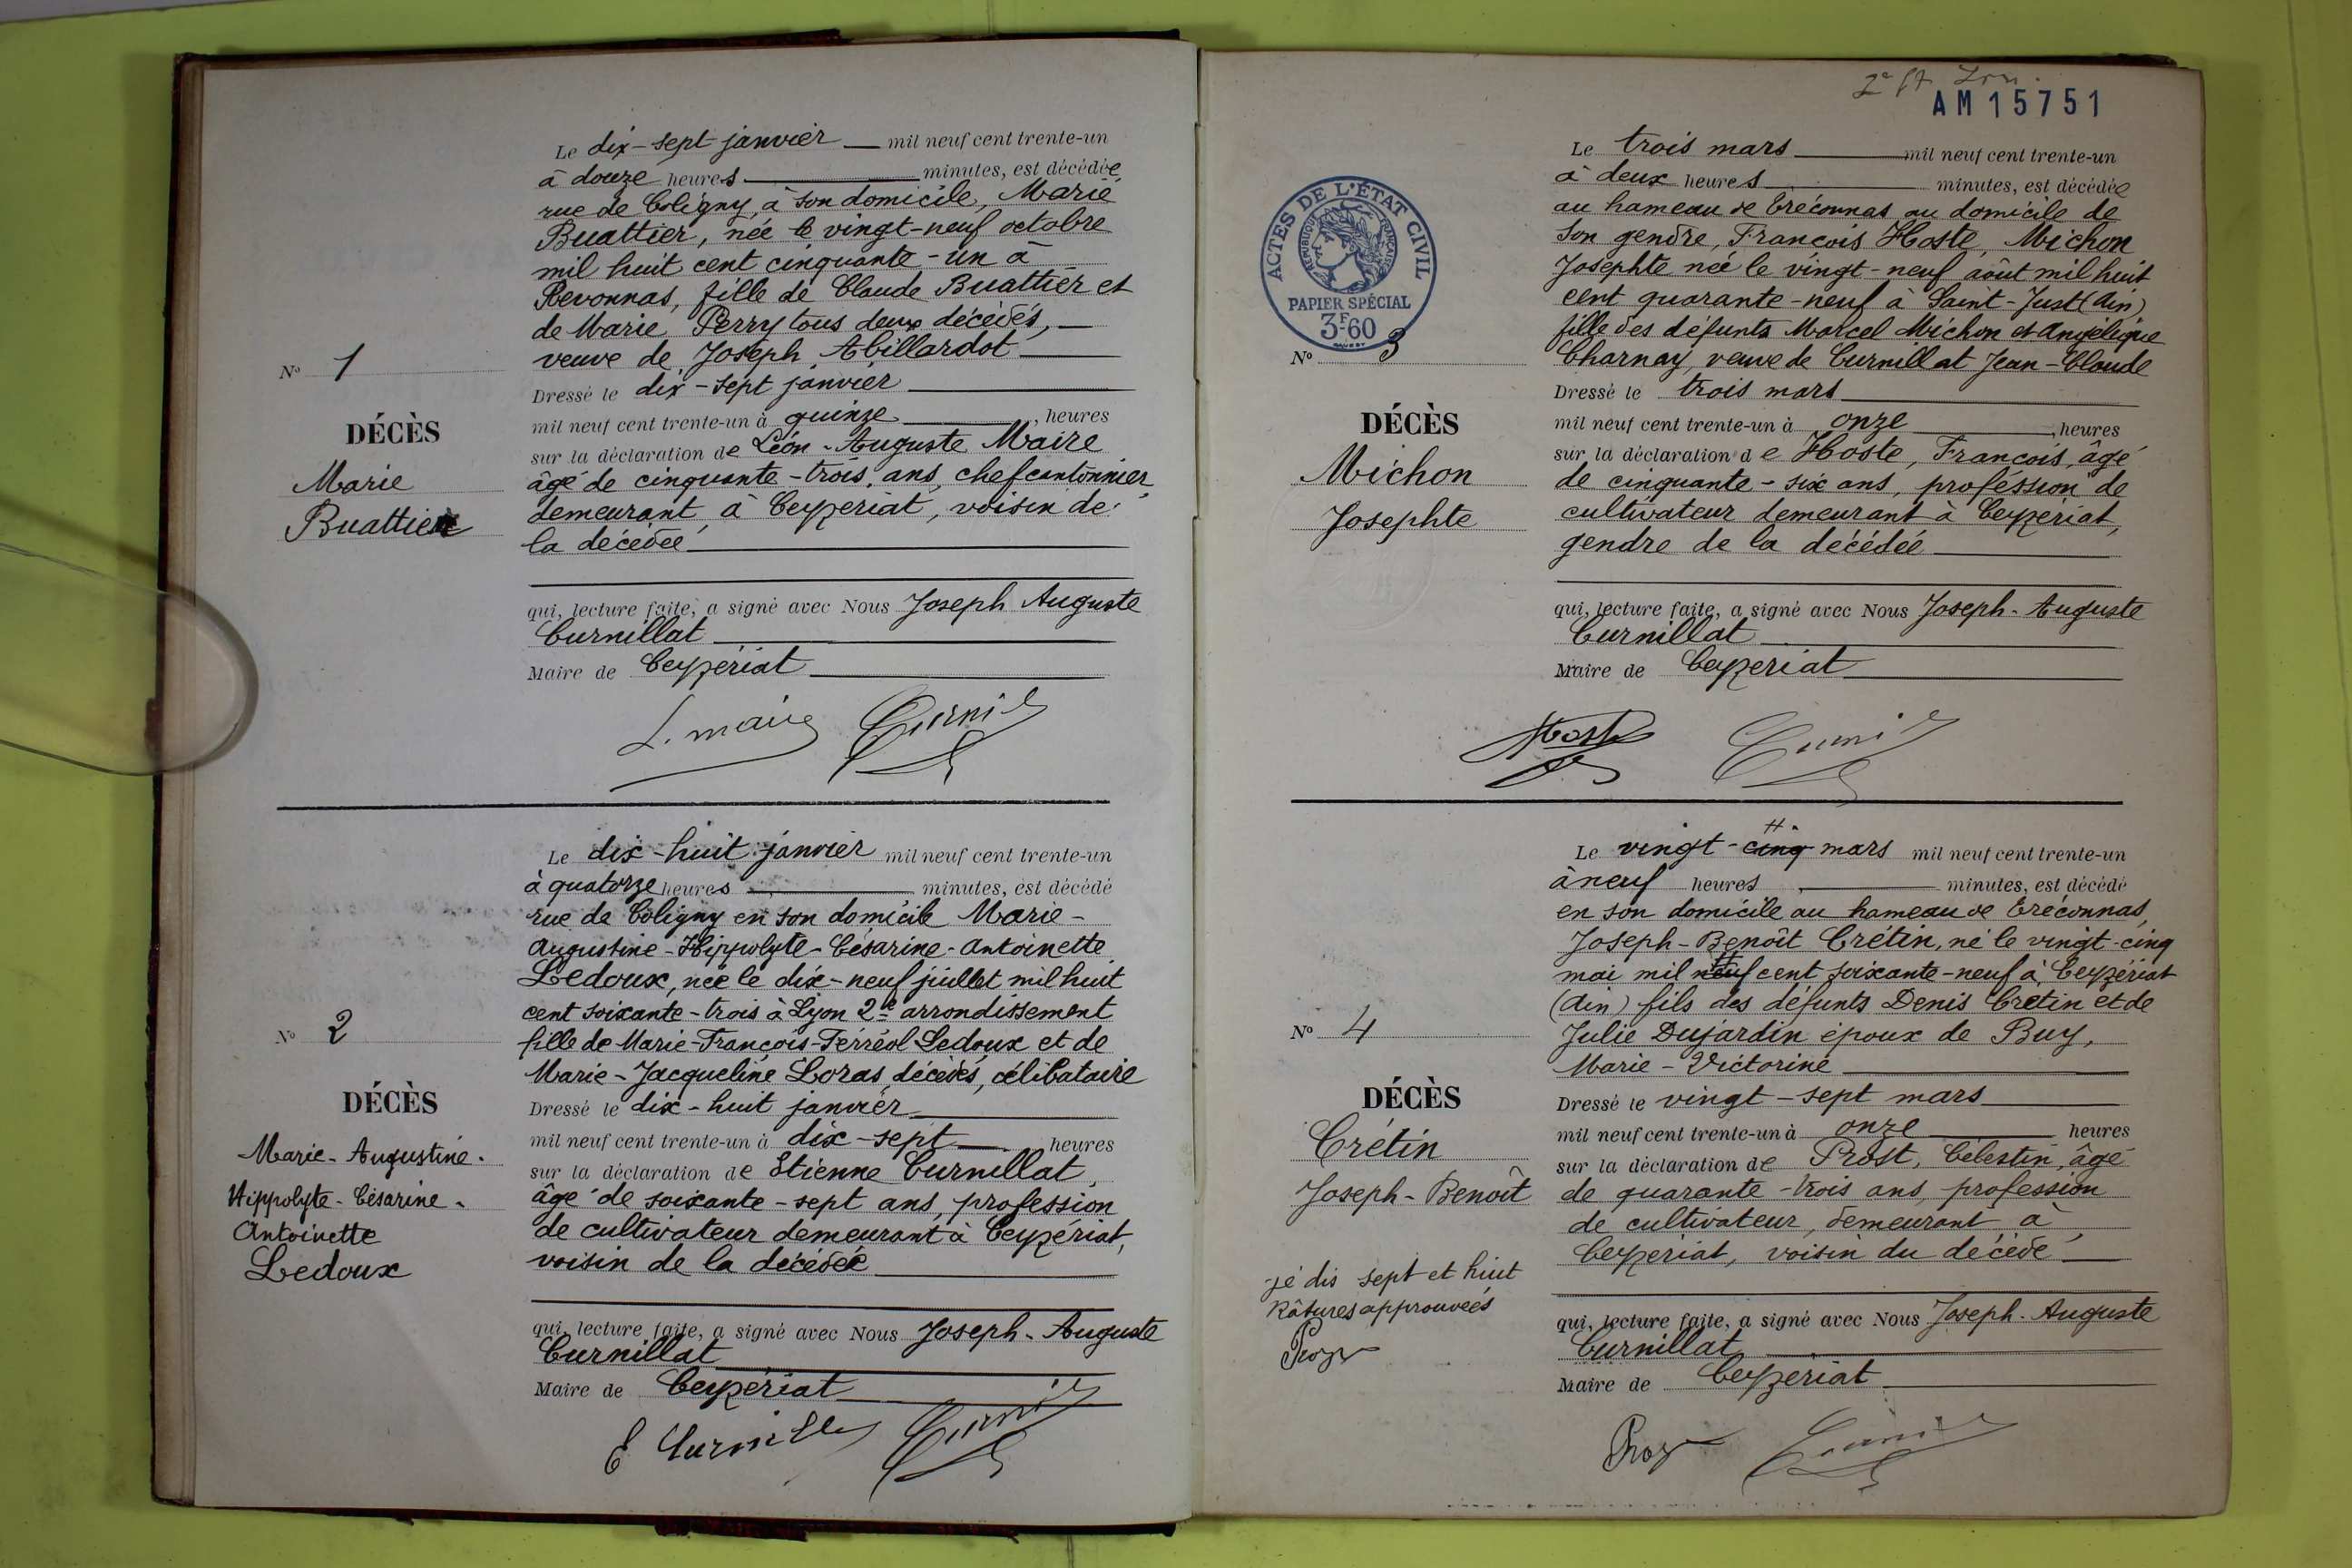 Le dix-sept janvier mil neuf cent trente-un
à douze heures minutes, est décédée
rue de Coligny, à son domicile, Marie
Buattier, née le vingt-neuf octobre
mil huit cent cinquante-un à
Revonnas, fille de Claude Buattier et
de Marie Perry tous deux décédés,
veuve de Joseph Abillardot
N° 1
DÉCÈS
Marie
Buattier
Dressé le dix-sept janvier
mil neuf cent trente-un à quinze heures
sur la déclaration de Léon-Auguste Maire
âgé de cinquante-trois ans, chef cantonnier,
demeurant à Ceyzériat, voisin de
la décédée
qui, lecture faite, a signé avec Nous Joseph Auguste
Curnillat
Maire de Ceyzériat
L. maire
Le dix-huit janvier mil neuf cent trente-un
à quatorze heures minutes, est décédé
rue de Coligny en son domicile Marie-
Augustine-Hippolyte-Césarine-Antoinette
Ledoux, née le dix-neuf juillet mil huit
cent soixante-trois à Lyon 2e arrondissement
fille de Marie-François-Ferréol Ledoux et de
Marie-Jacqueline Loras, décédés, célibataire
N° 2
DÉCÈS
Marie-Augustine-
Hippolyte-Césarine-
Antoinette
Ledoux
Dressé le dix-huit janvier
mil neuf cent trente-un à dix-sept heures
sur la déclaration de Etienne Curnillat,
âgé de soixante-sept ans, profession
de cultivateur demeurant à Ceyzériat,
voisin de la décédée
qui, lecture faite, a signé avec Nous Joseph-Auguste
Curnillat
Maire de Ceyzériat
E Curnillat
AM15751
ACTES DE L'ÉTAT CIVIL
RÉPUBLIQUE FRANÇAISE
PAPIER SPÉCIAL
3F60
Le trois mars mil neuf cent trente-un
à deux heures minutes, est décédée
au hameau de Tréconnas au domicile de
son gendre, François Hoste, Michon
Josephte née le vingt-neuf août mil huit
cent quarante-neuf à Saint-Just (Ain)
fille des défunts Marcel Michon et Angélique
Charnay, veuve de Curnillat Jean-Claude
N° 3
DÉCÈS
Michon
Josephte
Dressé le trois mars
mil neuf cent trente-un à onze heures
sur la déclaration de Hoste, François, âgé
de cinquante-six ans, profession de
cultivateur demeurant à Ceyzériat,
gendre de la décédée
qui, lecture faite, a signé avec Nous Joseph-Auguste
Curnillat
Maire de Ceyzeriat
Le vingt-cinq mars mil neuf cent trente-un
à neuf heures minutes, est décédé
en son domicile au hameau de Tréconnas,
Joseph-Benoît Crétin, né le vingt-cinq
mai mil neuf cent soixante-neuf à Ceyzériat
(Ain) fils des défunts Denis Cretin et de
Julie Dujardin époux de Buy,
Marie-Victorine
N° 4
DÉCÈS
Crétin
Joseph-Benoît
je dis sept et huit
Ratures approuvées
Dressé le vingt-sept mars
mil neuf cent trente-un à onze heures
sur la déclaration de Prost, Célestin, âgé
de quarante-trois ans, profession
de cultivateur, demeurant à
Ceyzeriat, voisin du décédé
qui, lecture faite, a signé avec Nous Joseph-Auguste
Curnillat
Maire de Ceyzériat